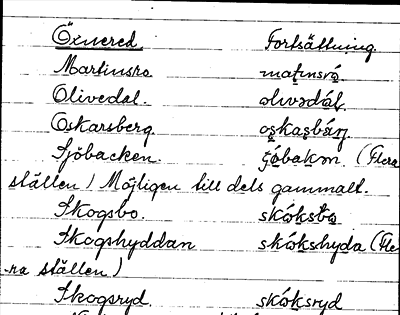 Öxnered Fortsättning.
Martinsro matinsró
Olivedal. olivədál
Oskarsberg. oskasbárj
Sjöbacken. ʃö́bakən. (Flera
ställen) Möjligen till dels gammalt.
Skogsbo. skóksbo
Skogshyddan skókshyda (Fle-
ra ställen)
Skogsryd. skóksryd